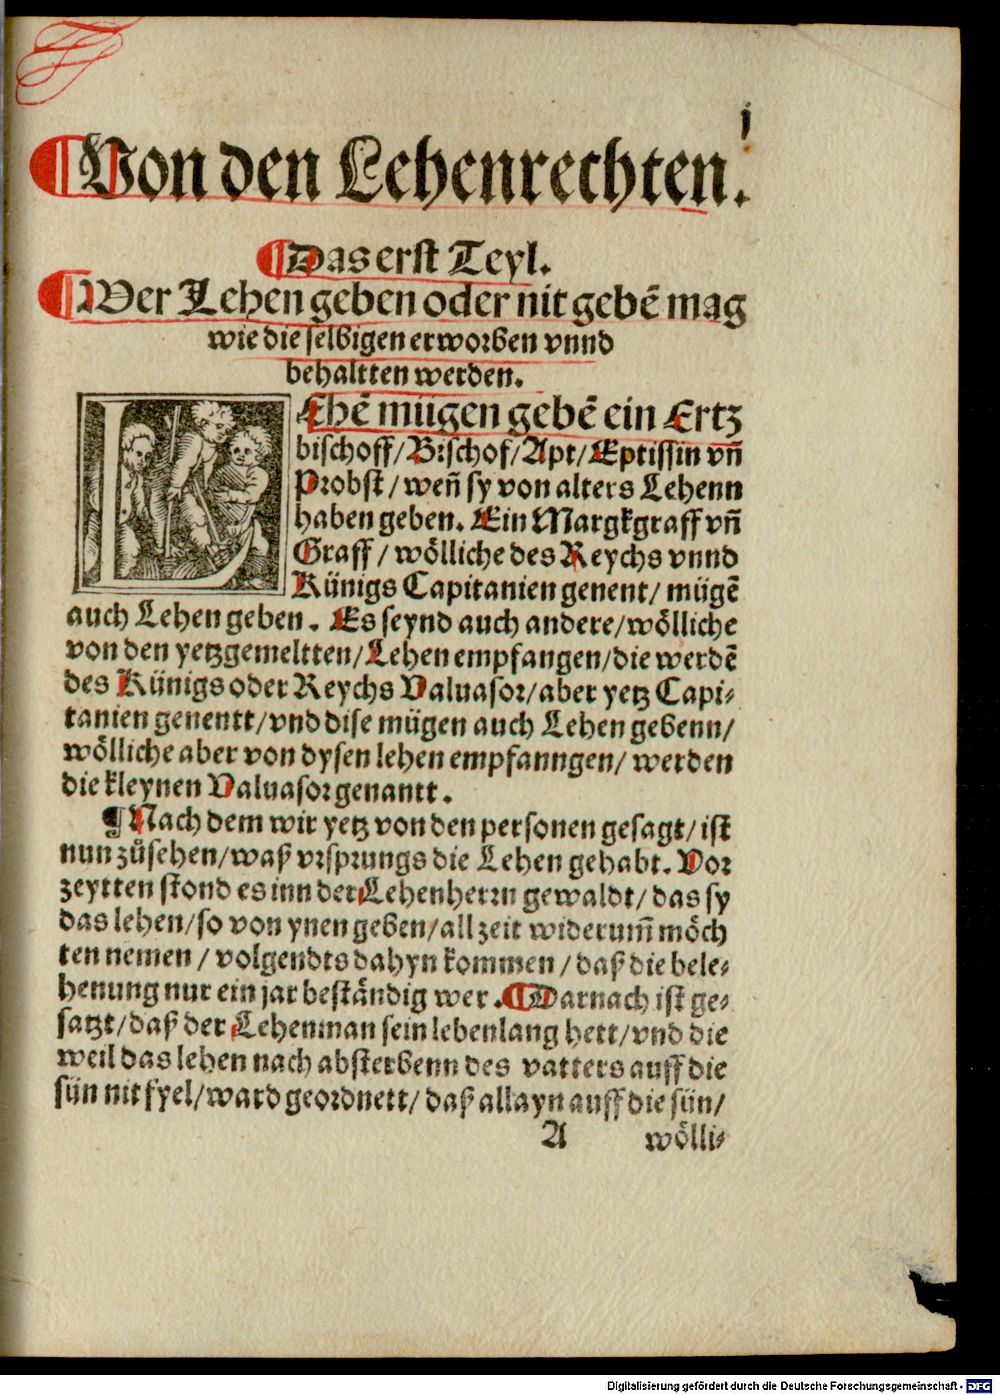 j
¶Von den Lehenrechten.
¶Das erst Teyl.
¶Wer Lehen geben oder nit gebē mag
wie die selbigen erworben vnnd
behaltten werden.
LEhē mügen gebē ein Ertz
bischoff/Bischof/Apt/Eptissin vn̄
Probst/wen̄ sy von alters Lehenn
haben geben. Ein Margkgraff vn̄
Graff/wölliche des Reychs vnnd
Künigs Capitanien genent/mügē
auch Lehen geben. Es seynd auch andere/wölliche
von den yetzgemeltten/Lehen empfangen/die werdē
des Künigs oder Reychs Valuasor/aber yetz Capi⸗
tanien genentt/vnd dise mügen auch Lehen gebenn/
wölliche aber von dysen lehen empfanngen/werden
die kleynen Valuasor genantt.
¶Nach dem wir yetz von den personen gesagt/ist
nun zůsehen/waß vrsprungs die Lehen gehabt. Vor
zeytten stond es inn der Lehenherrn gewaldt/das sy
das lehen/so von ynen geben/all zeit widerum̄ möch
ten nemen/volgendts dahyn kommen/daß die bele⸗
henung nur ein jar beständig wer. ¶Darnach ist ge⸗
satzt/daß der Lehenman sein lebenlang hett/vnd die
weil das lehen nach absterbenn des vatters auff die
sün nit fyel/ward geordnett/daß allayn auff die sün/
A wölli⸗
Digitalisierung gefördert durch die Deutsche Forschungsgemeinschaft - DFG